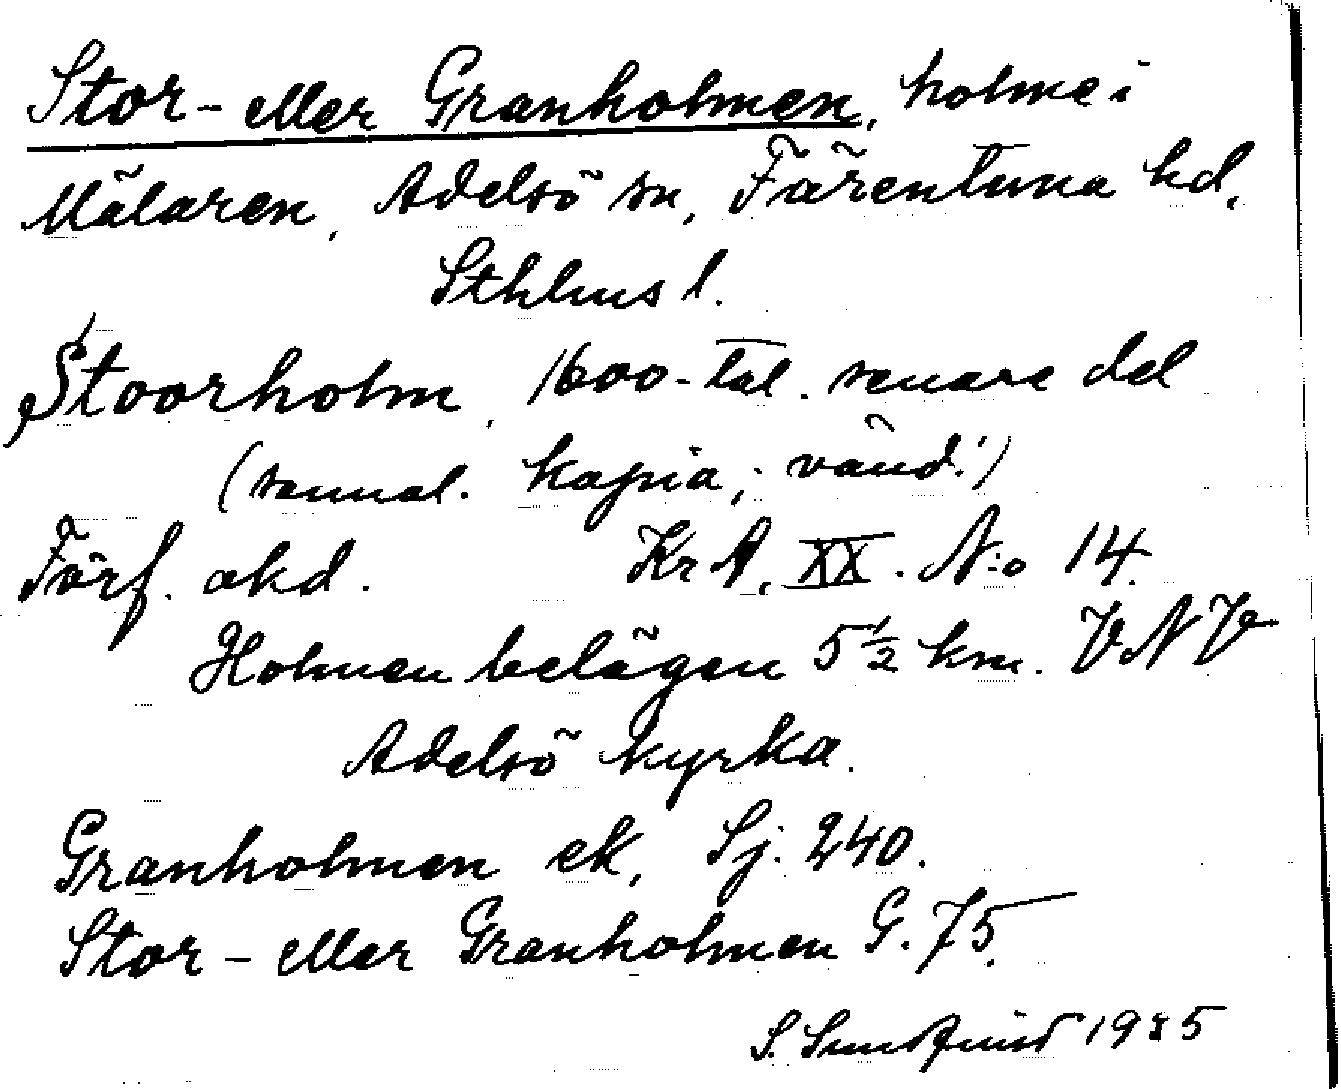 Stor- eller Granholmen, holme i
Mälaren, Adelsö sn, Färentuna hd,
Sthlms l.
Stoorholm, 1600-tal. senare del
(samal. kopia; vänd!)
Förf. okd. Kr A, XX. N:o 14.
Holmen belägen 5 1/2 km. VNV
Adelsö kyrka.
Granholmen ek, Sj. 240.
Stor- eller Granholmen G. 75.
S. Sundquist 1935